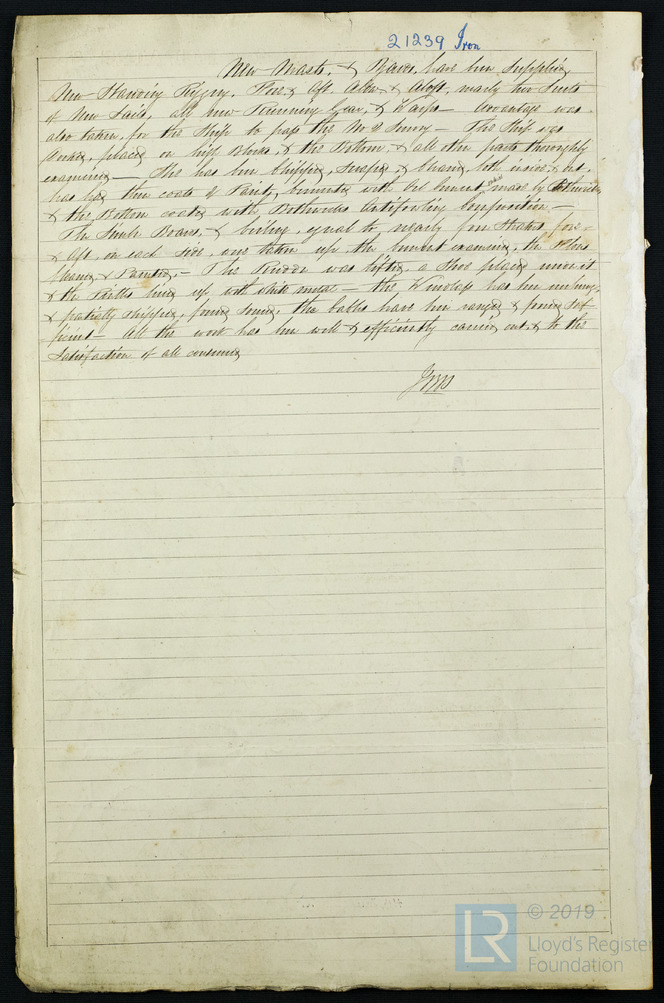 21239 Iron
New Masts, & Yards, have been Supplied,
New Standing Rigging, Fore & Aft, Alow & Aloft, nearly two Suits
of New Sails, all new Running Gear, & Warps — Advantage was
also taken, for the Ship to pass the No 2 Survey — The Ship was
Docked, placed on high Blocks, & the Bottom, & all other parts thoroughly
examined — She has been Chipped, scraped & cleaned, both inside & out,
has had three coats of Paint, cemented with cement made by
& the Bottom coated with Antifouling Composition —
The Boards, & Ceiling, equal to nearly four Strakes fore
& Aft, on each side, were taken up the cement examined, the
Cleaned & Painted, — The Rudder was lifted, a placed under it
& the Pintles lined up with white metal — the Windlass has been
& partially stripped, found Sound, the Cables have been ranged & found Suf-
ficient — All the work has been well & efficiently carried out & to the
Satisfaction of all concerned
© 2019
LR
Lloyd's Register
Foundation